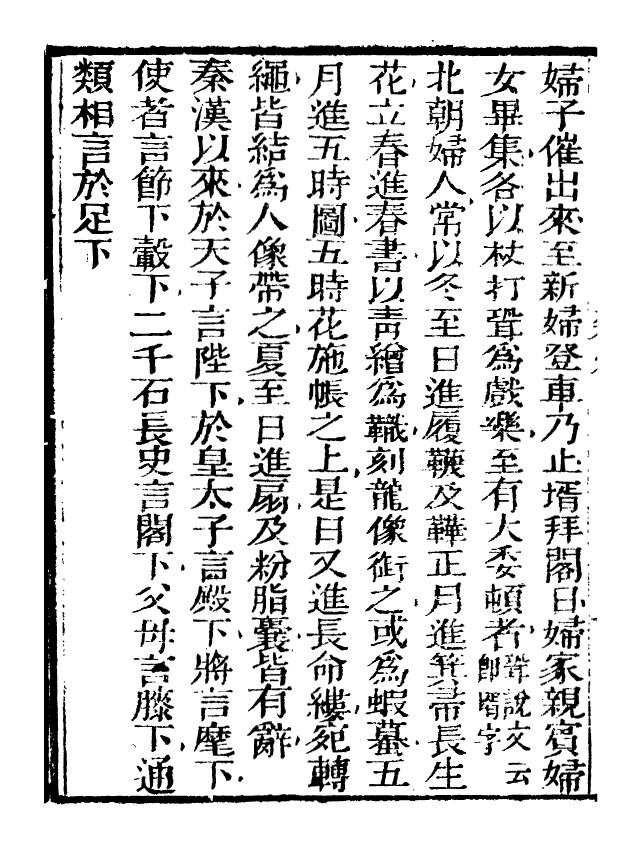 婦子催出來至新婦登車乃止壻拜閣日婦家親賓婦
女畢集各以杖打聟爲戲樂至有大委頓者聟說文云卽壻字
北朝婦人常以冬至日進履韈及鞾正月進箕帚長生
花立春進春書以靑繒爲幟刻龍像銜之或爲蝦蟇五
月進五時圖五時花施帳之上是日又進長命縷宛轉
繩皆結爲人像帶之夏至日進扇及粉脂囊皆有辭
秦漢以來於天子言陛下於皇太子言殿下將言麾下
使者言節下轂下二千石長史言閣下父母言膝下通
類相言於足下